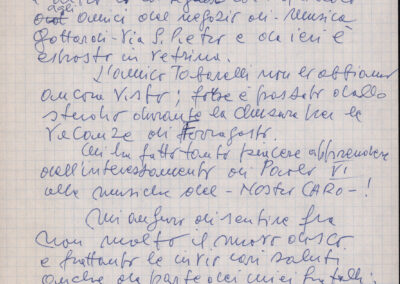 agli
amici del negozio di musica
Gottardi - Via S. Pietro e da ieri è
esposto in vetrina.
L'amico Tabarelli non lo abbiamo
ancora visto; forse è passato dallo
studio durante la chiusura per le
vacanze di Ferragosto.
Mi ha fatto tanto piacere apprendere
dell'interessamento di Paolo VI
alla musica del - Nostro CARO - !
Mi auguro di sentire fra
non molto il nuovo disco
e frattanto le invio cari saluti
anche da parte dei miei fratelli;